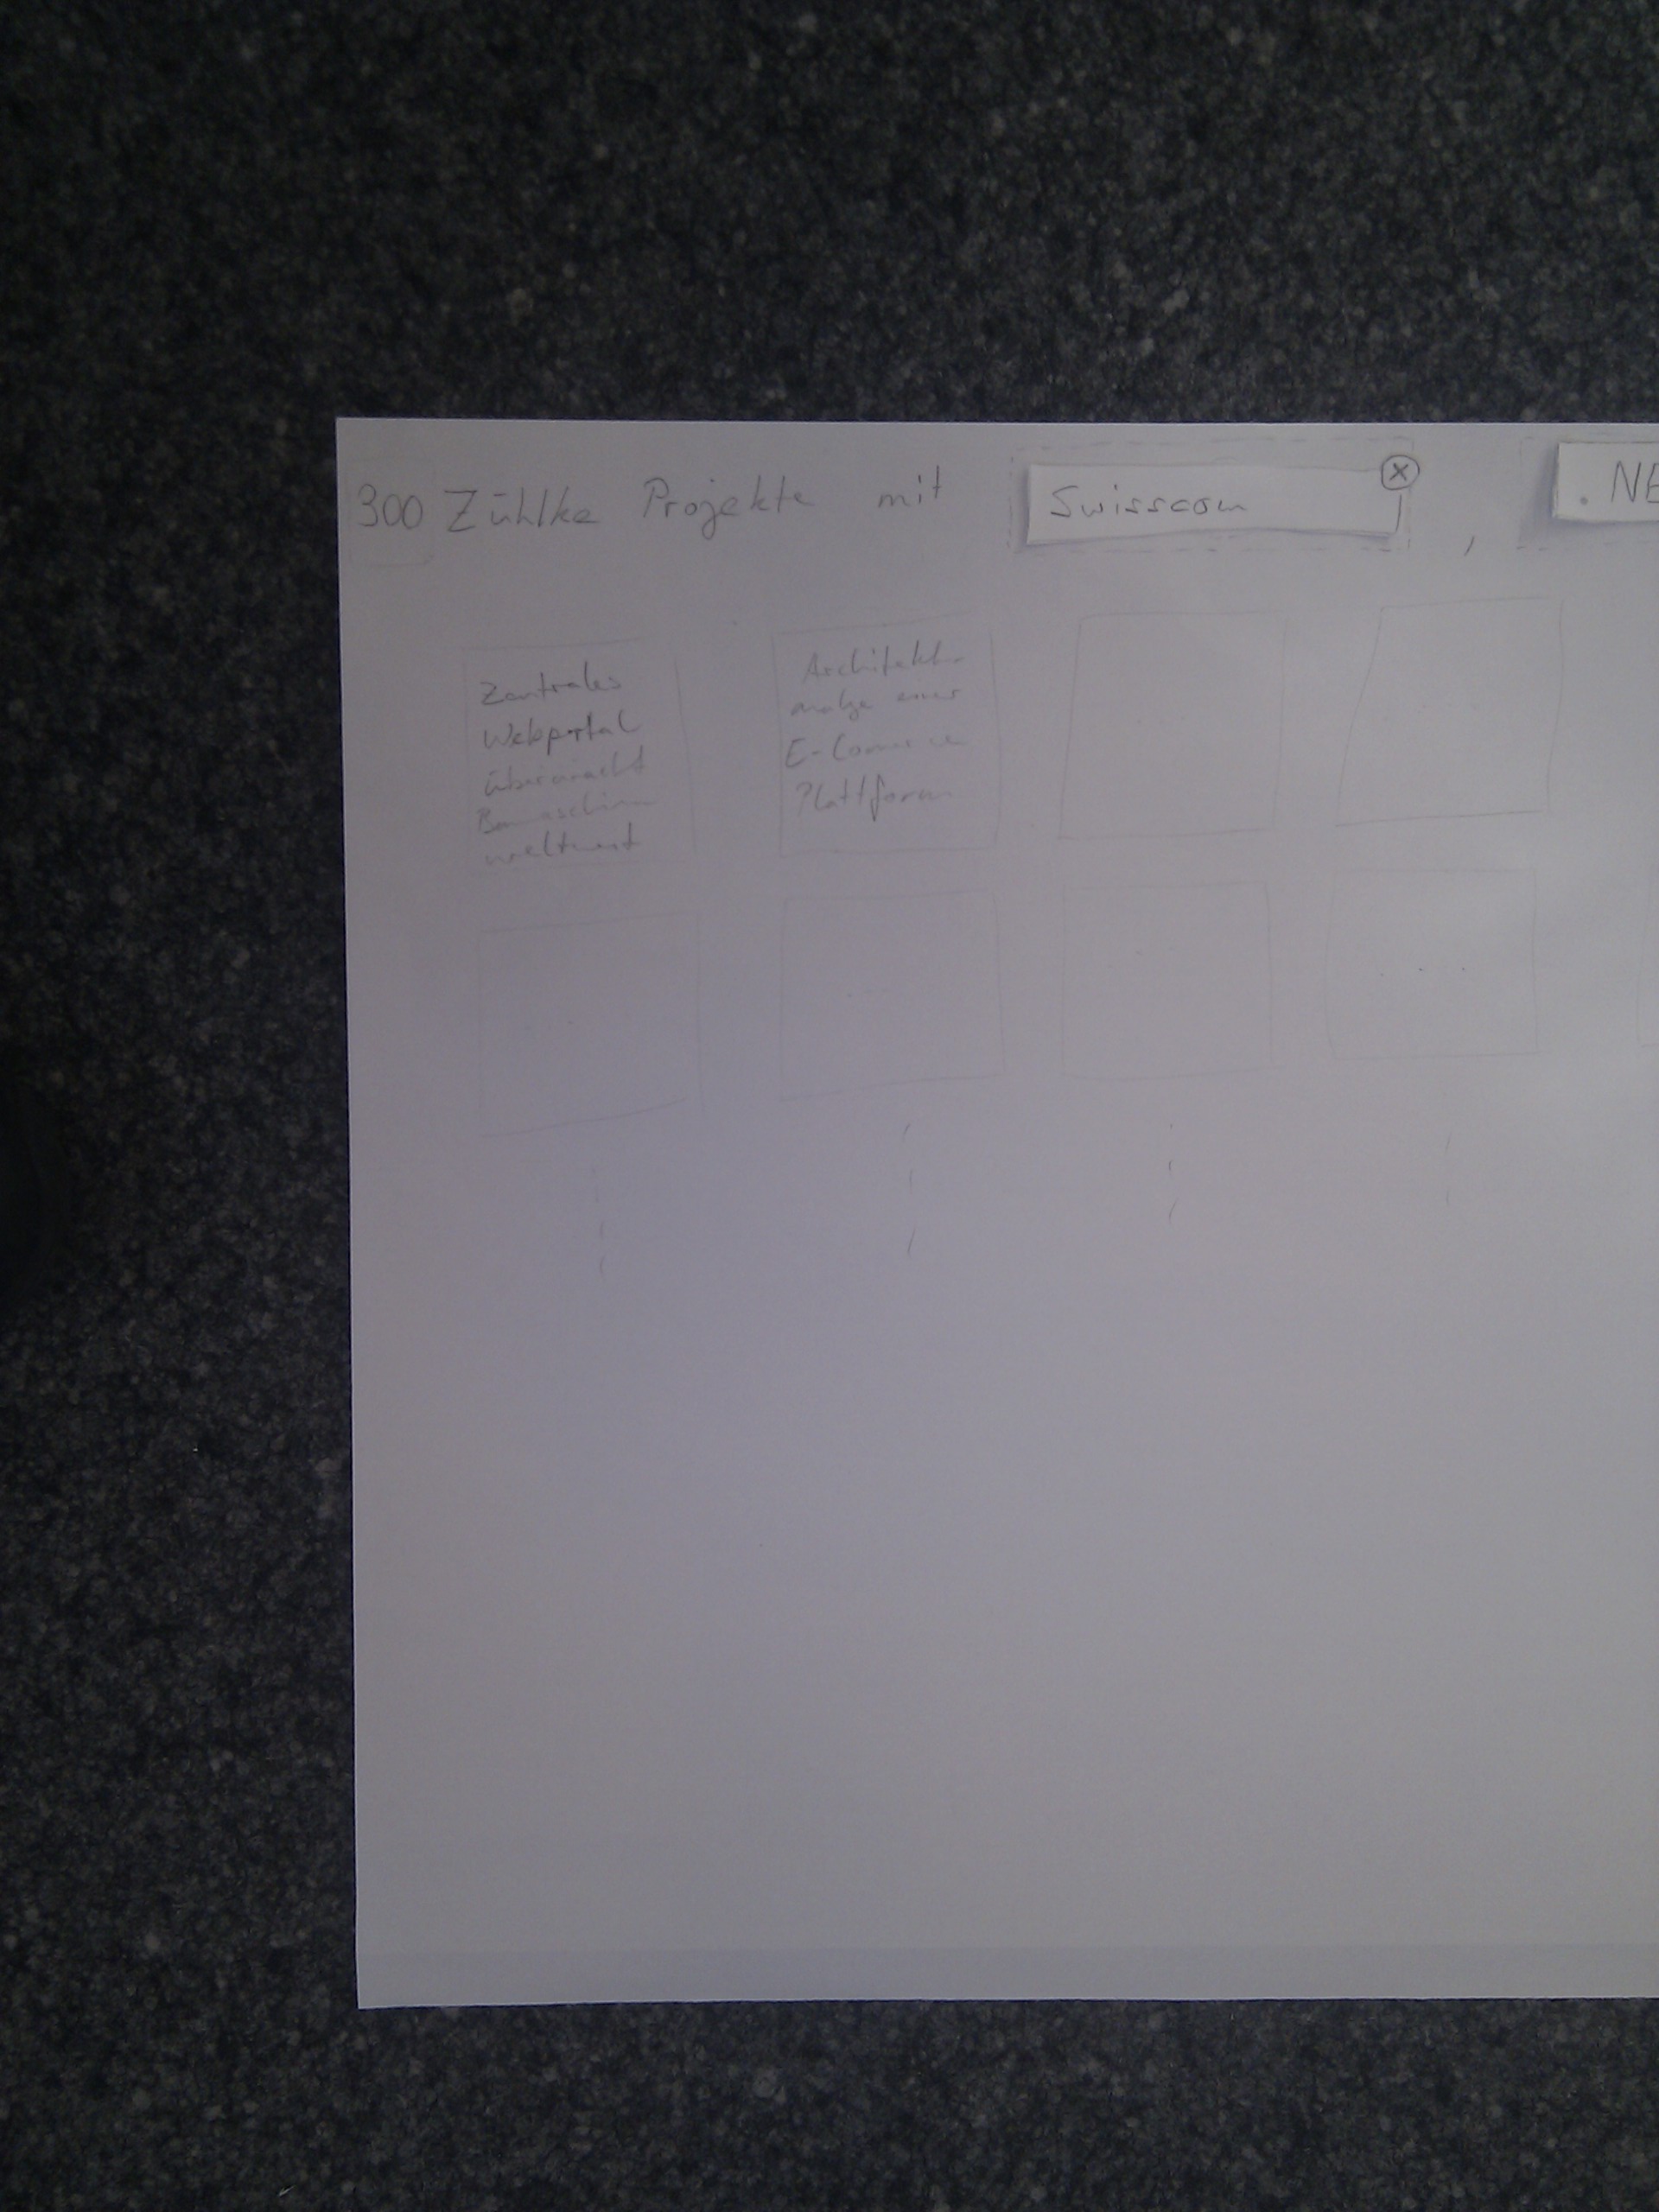 300 Zühlke Projekte mit Swisscom ⓧ , .NE
Zentrales
Webportal
überwacht
Baumaschinen
weltweit
Architektur-
analyse einer
E-Commerce
Plattform